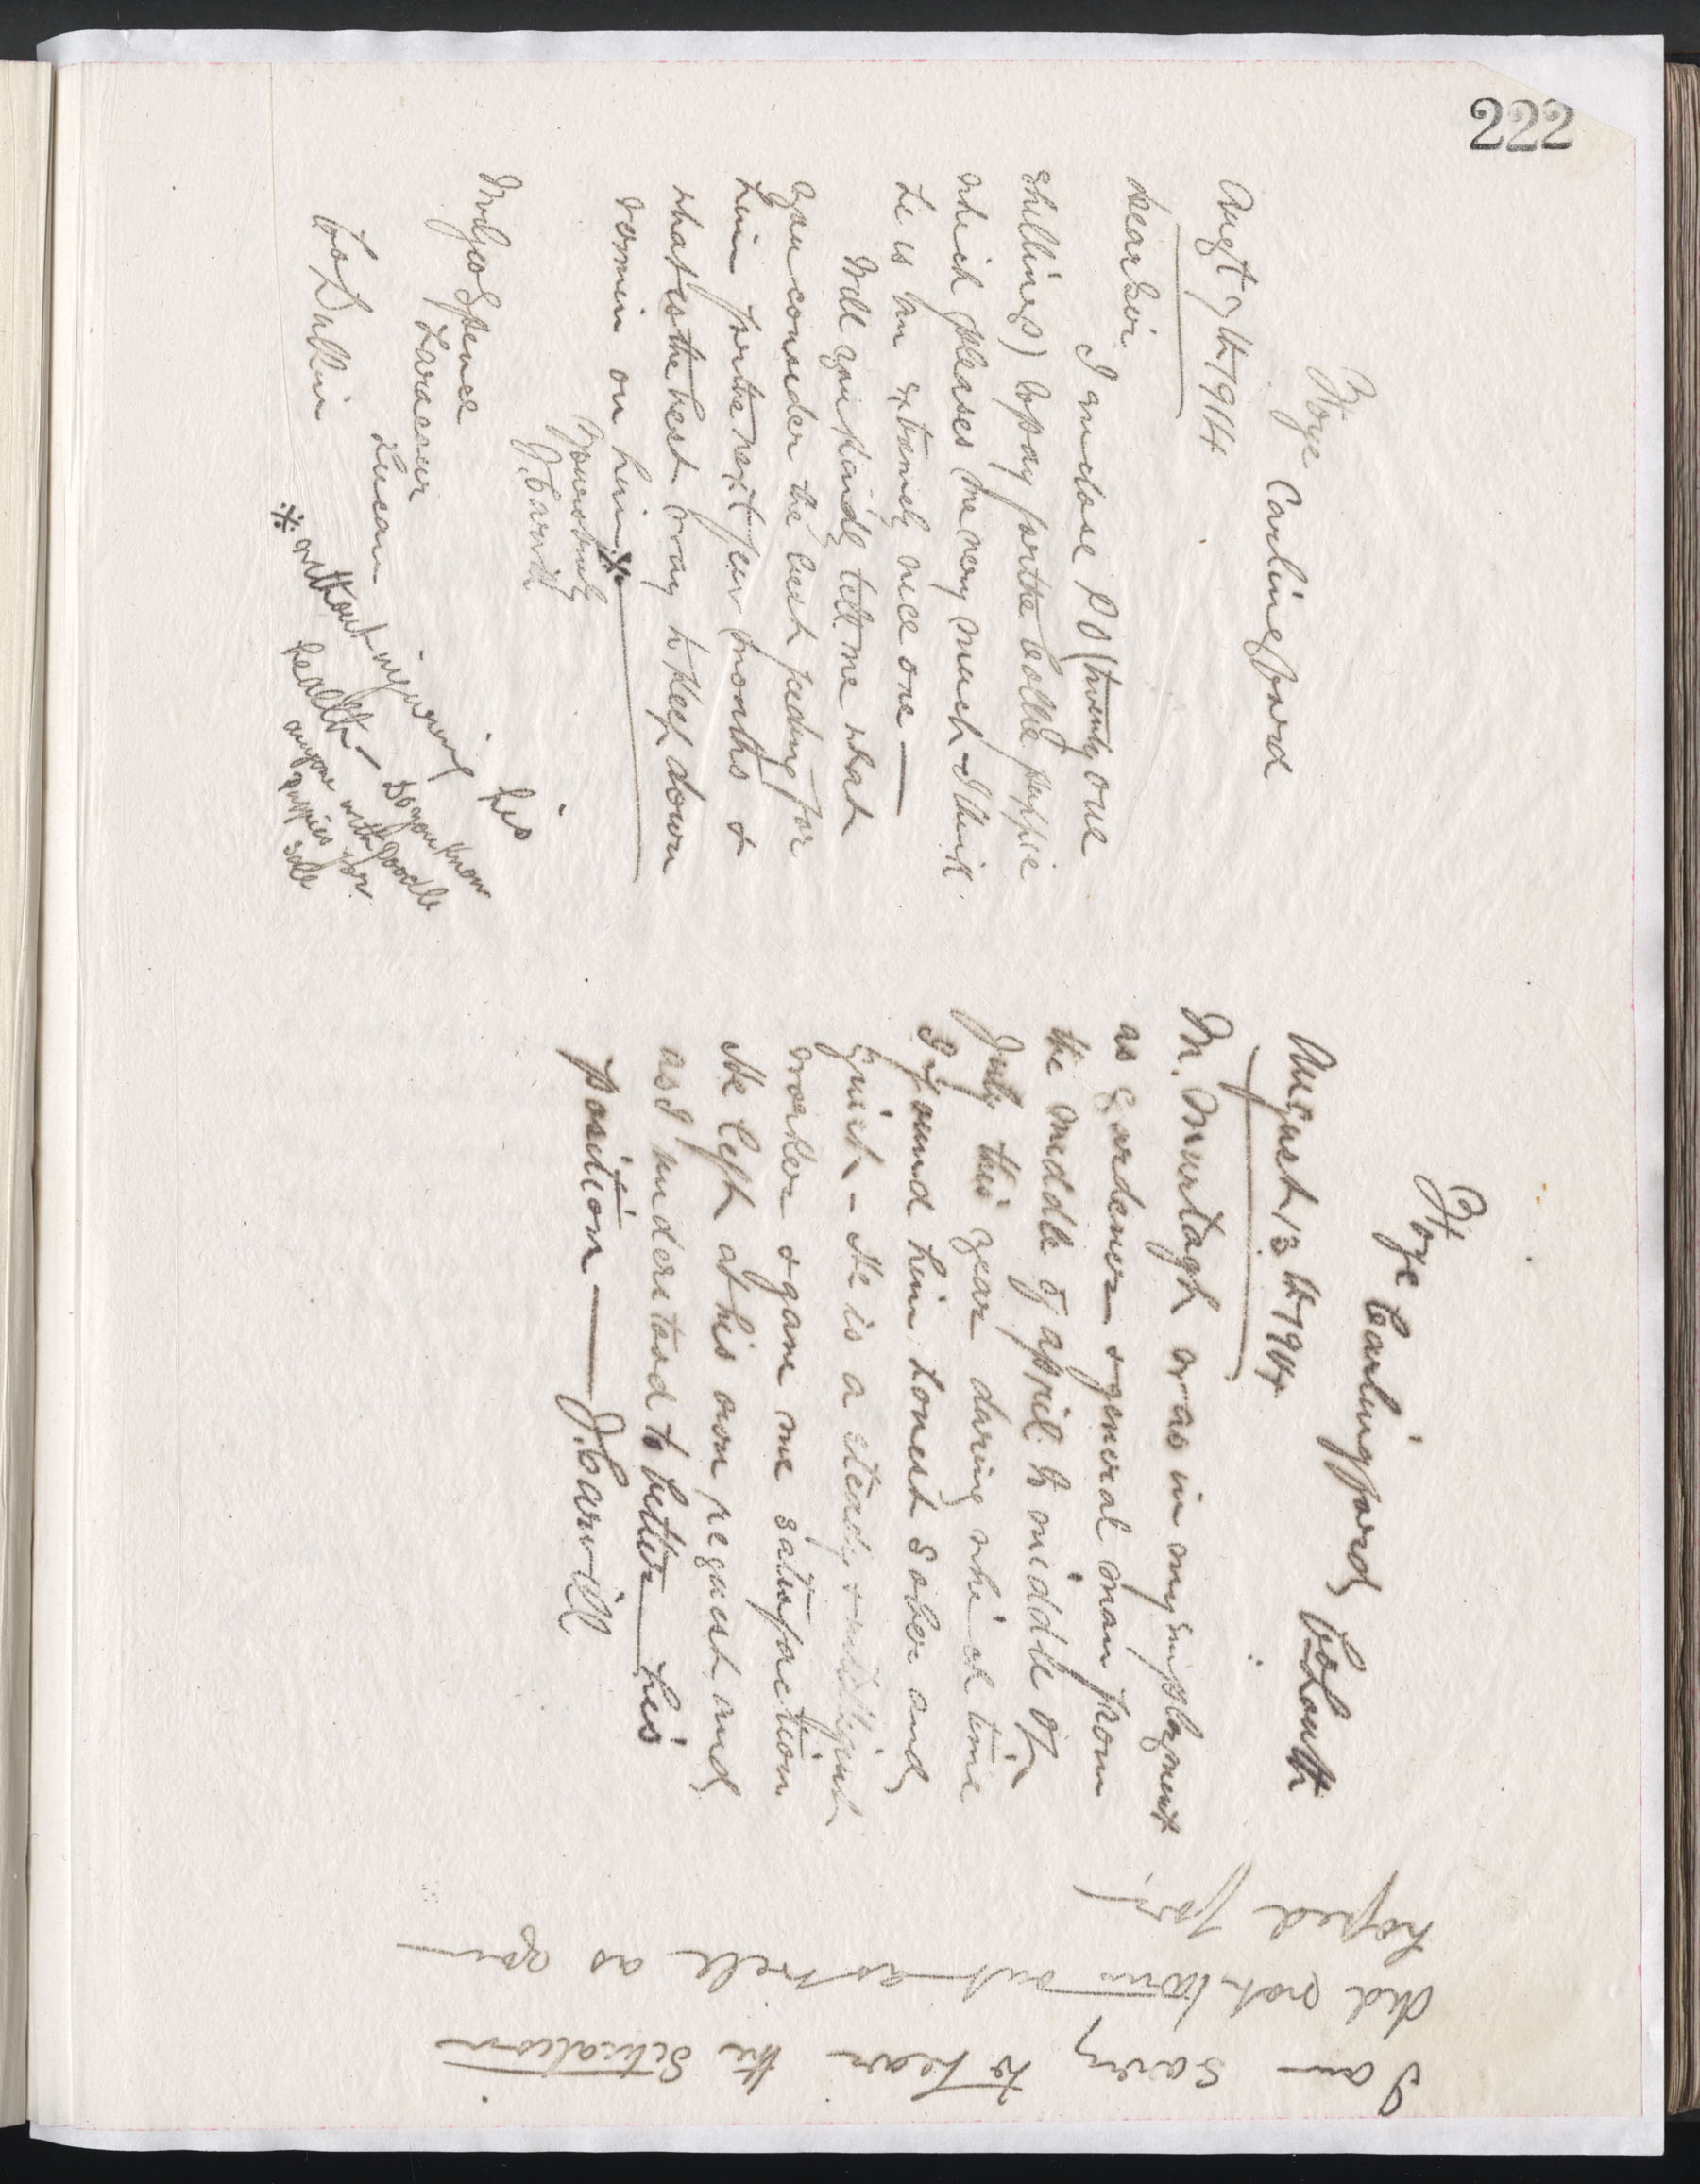 222
Ffoye Carlingford
Augst 7th 1914
Dear Sir
I enclose P O (twenty one
shillings) to pay for the collie puppie
which pleases me very much - I think
he is an extremely nice one —
Will you kindly tell me what
you consider the best feeding for
him for the next few months &
what is the best way to keep down
vermin on him ※
Yours truly
J. Carvill
Mr Geo Spence
Laracour
Lucan
Co Dublin
※ without injuring his
health - Do you know
anyone with poodle
puppies for
sale
Ffoye Carlingford Co Louth
August 13th 1914
M. Murtagh was in my employment
as gardener & general man from
the middle of april to middle of
July this year during which time
I found him honest sober and
quiet - He is a steady & intelligent
worker & gave me satisfaction
He left at his own request and
as I understood to better his
position — J. Carvill
I am sorry to hear the Situation
did not turn out as well as you
hoped for